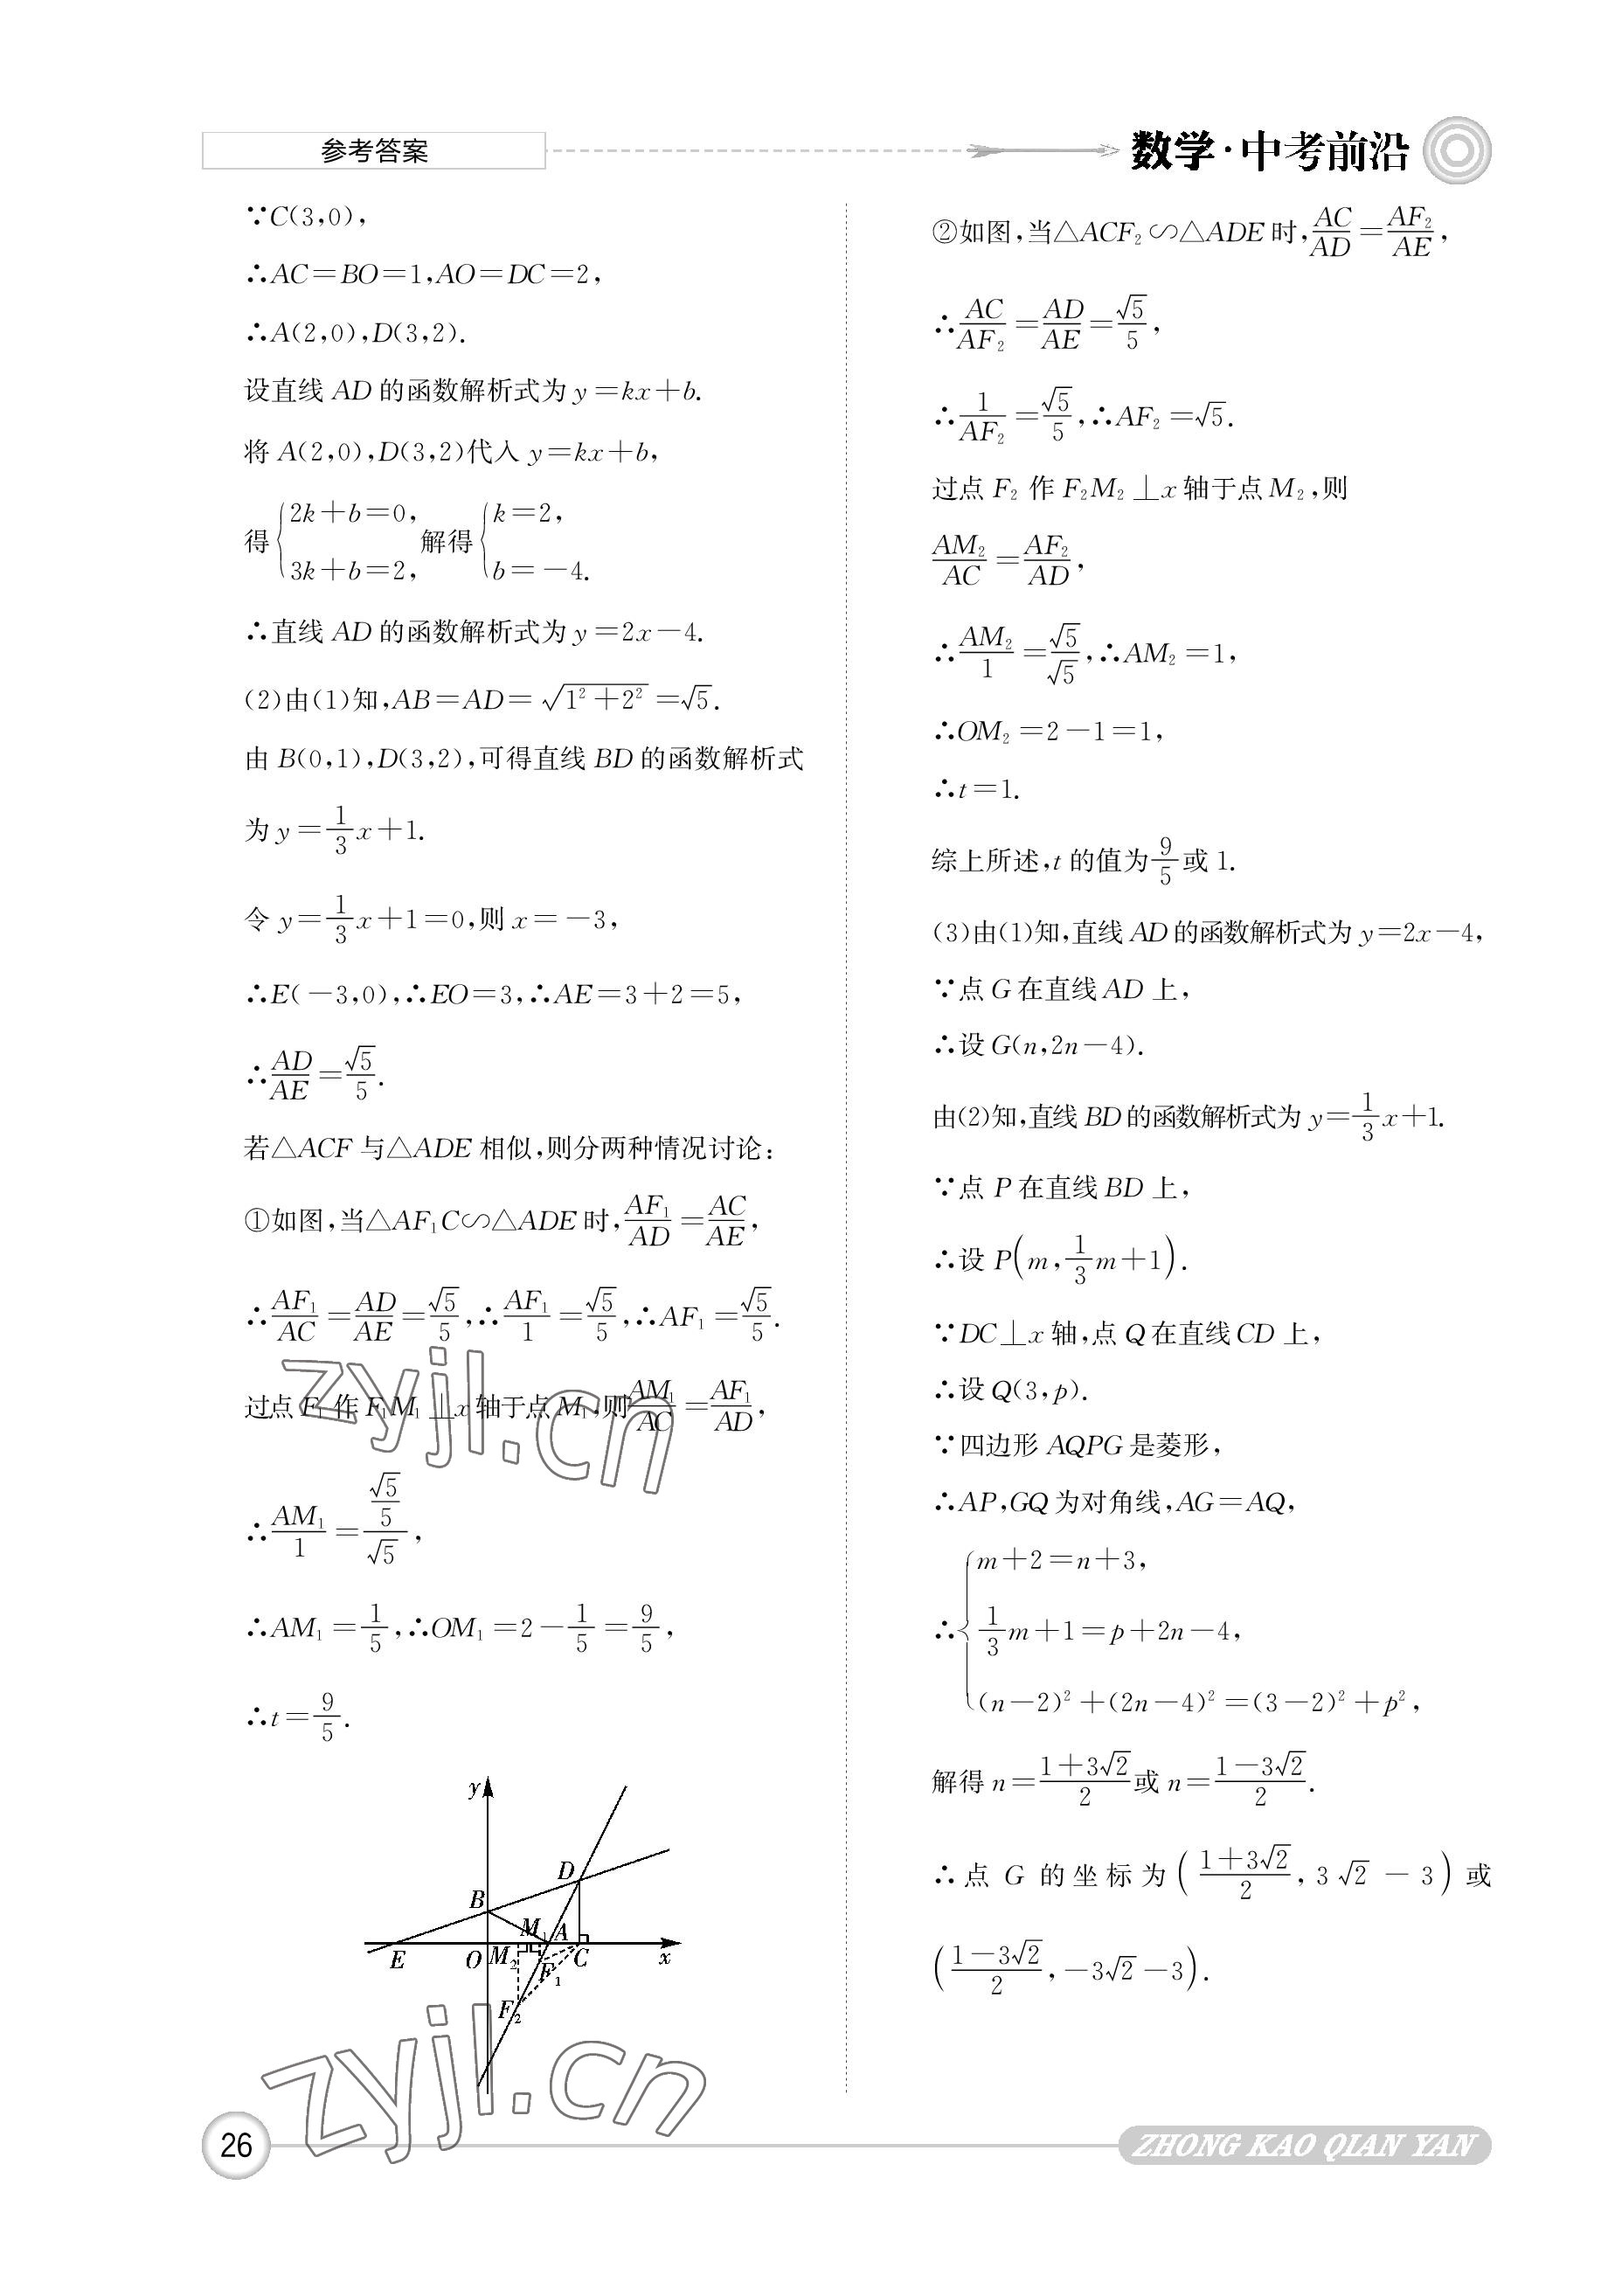 参考答案
数学·中考前沿
∵C(3,0),
∴AC=BO=1,AO=DC=2,
∴A(2,0),D(3,2).
设直线 AD 的函数解析式为 y=kx+b.
将 A(2,0),D(3,2)代入 y=kx+b,
得{2k+b=0, 3k+b=2, 解得{k=2, b=-4.
∴直线 AD 的函数解析式为 y=2x-4.
(2)由(1)知,AB=AD=√(1²+2²)=√5.
由 B(0,1),D(3,2),可得直线 BD 的函数解析式
为 y=1/3x+1.
令 y=1/3x+1=0,则 x=-3,
∴E(-3,0),∴EO=3,∴AE=3+2=5,
∴AD/AE=√5/5.
若△ACF 与△ADE 相似,则分两种情况讨论:
①如图,当△AF₁C∽△ADE 时,AF₁/AD=AC/AE,
∴AF₁/AC=AD/AE=√5/5,∴AF₁/1=√5/5,∴AF₁=√5/5.
过点 F₁ 作 F₁M₁⊥x 轴于点 M₁,则AM₁/AC=AF₁/AD,
∴AM₁/1=(√5/5)/√5,
∴AM₁=1/5,∴OM₁=2-1/5=9/5,
∴t=9/5.
y
D
B
M₁
A
E
O
M₂
C
x
F₁
F₂
②如图,当△ACF₂∽△ADE 时,AC/AD=AF₂/AE,
∴AC/AF₂=AD/AE=√5/5,
∴1/AF₂=√5/5,∴AF₂=√5.
过点 F₂ 作 F₂M₂⊥x 轴于点 M₂,则
AM₂/AC=AF₂/AD,
∴AM₂/1=√5/√5,∴AM₂=1,
∴OM₂=2-1=1,
∴t=1.
综上所述,t 的值为9/5或 1.
(3)由(1)知,直线 AD 的函数解析式为 y=2x-4,
∵点 G 在直线 AD 上,
∴设 G(n,2n-4).
由(2)知,直线 BD 的函数解析式为 y=1/3x+1.
∵点 P 在直线 BD 上,
∴设 P(m,1/3m+1).
∵DC⊥x 轴,点 Q 在直线 CD 上,
∴设 Q(3,p).
∵四边形 AQPG 是菱形,
∴AP,GQ 为对角线,AG=AQ,
∴{m+2=n+3,
1/3m+1=p+2n-4,
(n-2)²+(2n-4)²=(3-2)²+p²,
解得 n=(1+3√2)/2或 n=(1-3√2)/2.
∴点 G 的坐标为((1+3√2)/2,3√2-3)或
((1-3√2)/2,-3√2-3).
zyjl.cn
zyjl.cn
26
ZHONG KAO QIAN YAN